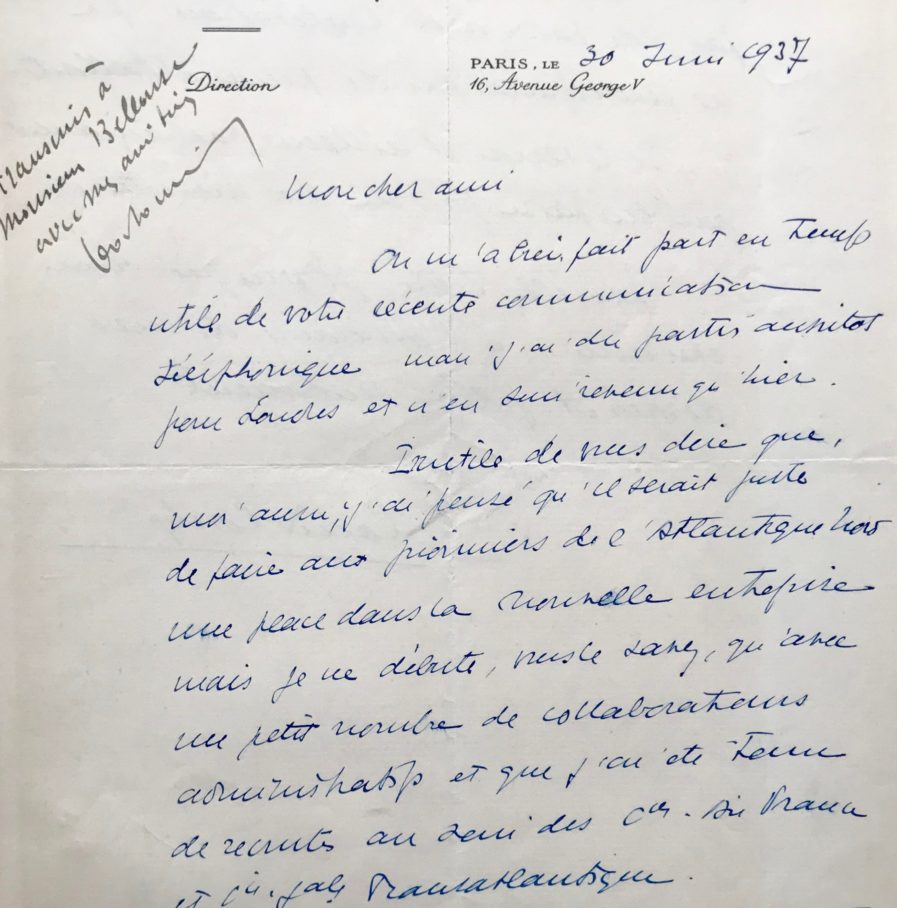 PARIS, LE 30 Juin 1937
Direction
16, Avenue George V
transmis à
Monsieur
avec mes amitiés
Mon cher ami
On m'a bien fait part en temps
utile de votre récente communication
téléphonique mais j'ai du partir aussitot
pour Londres et n'en suis revenu qu'hier.
Inutile de vous dire que,
moi aussi, j'ai pensé qu'il serait juste
de faire aux pionniers de l'Atlantique Nord
une place dans la nouvelle entreprise
mais je ne débute, vous le savez, qu'avec
un petit nombre de collaborateurs
administratifs et que j'ai été tenu
de recruter au sein des Cies. Air France
et Cie. Gale Transatlantique.